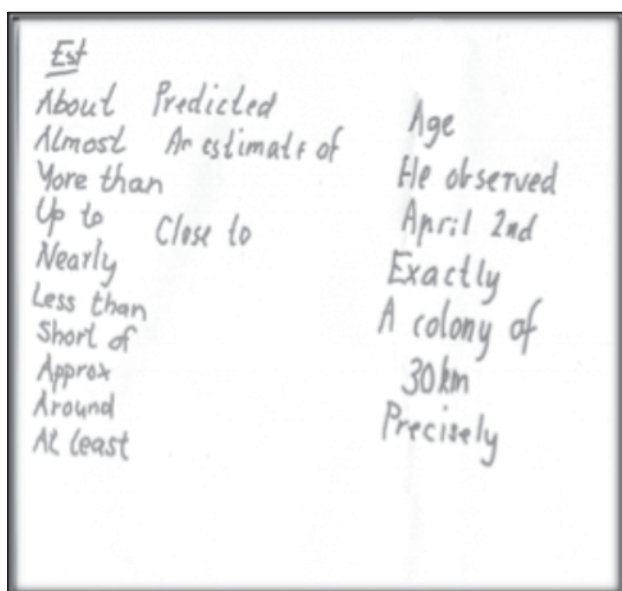 Est
About Predicted
Almost An estimate of
More than
Up to Close to
Nearly
Less than
Short of
Approx
Around
At least
Age
He observed
April 2nd
Exactly
A colony of
30km
Precisely